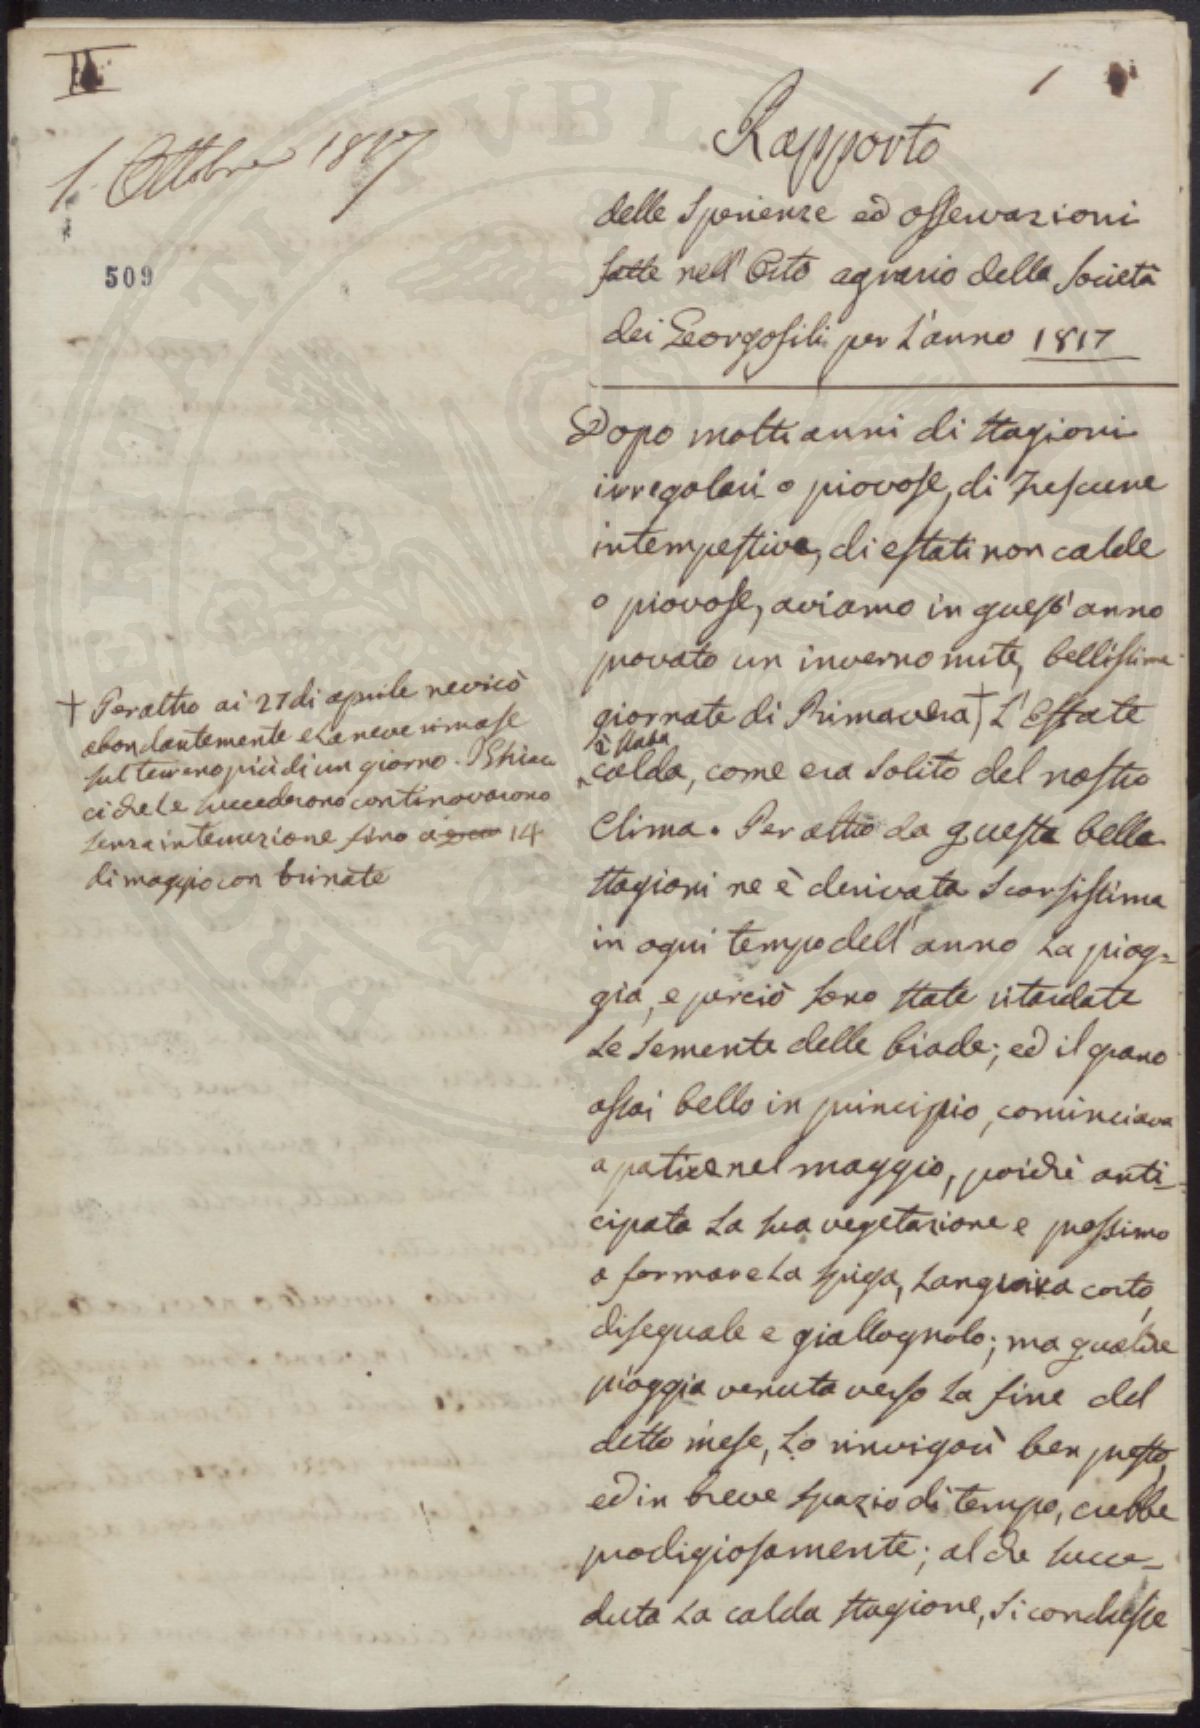 II
1
1. Ottobre 1817
509
Rapporto
delle Sperienze ed osservazioni
fatte nell'Orto agrario della Società
dei Georgofili per L'anno 1817
Dopo molti anni di stagioni
irregolari o piovose, di Frescure
intempestive, di estati non calde
o piovose, aviamo in quest'anno
provato un inverno mite, bellissime
giornate di Primavera † L'Estate
è stata
calda, come era solito del nostro
Clima. Peraltro da questa bella
stagioni ne è derivata scarsissima
in ogni tempo dell'anno La piog=
gia, e perciò sono state ritardate
Le Semente delle biade; ed il grano
assai bello in principio, cominciava
a patire nel maggio, poichè anti-
cipata La sua vegetazione e prossimo
a formare La spiga, Languiva corto,
diseguale e giallognolo; ma qualche
pioggia venuta verso La fine del
detto mese, Lo rinvigorì ben presto,
ed in breve spazio di tempo, crebbe
prodigiosamente; al che succe-
duta La calda stagione, si condusse
† Peraltro ai 27 di aprile nevicò
abondantemente e La neve rimase
sul terreno più di un giorno. I Ghiac
ci che Le succederono continovarono
senza interruzione fino a 14
di maggio con brinate